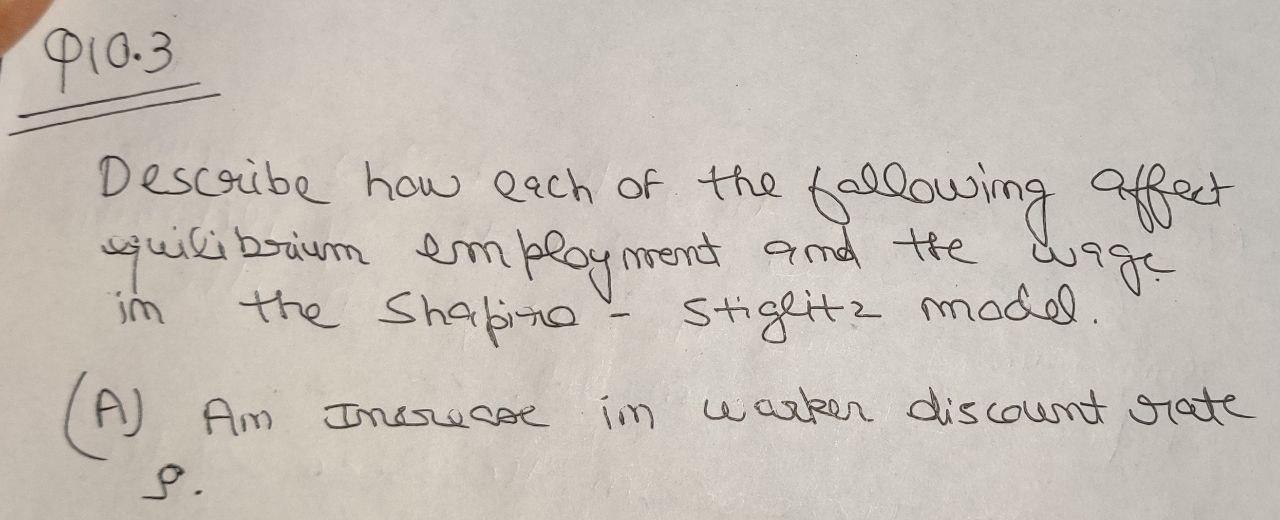 Q10.3
Describe how each of the following affect
equilibrium employment and the wage
in the Shapiro - Stiglitz model.
(A) An Increase in worker discount rate
ρ.